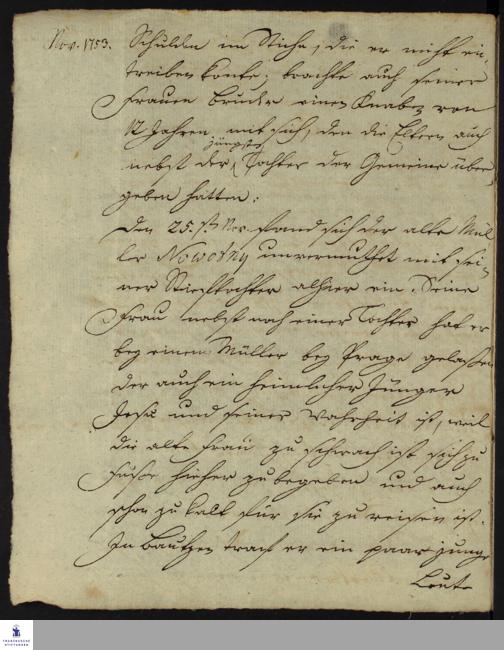 Nov. 1753. Schulden im Stiche, die er nicht ein-
treiben konte; brachte auch seiner
Frauen Bruder einen Knaben von
12 Jahren mit sich, den die Eltern auch
nebst der jüngste Tochter der Gemeine über-
geben hatten.
Den 25.st Nov. fand sich der alte Mül-
ler Nowotny unvermuthet mit sei-
ner Stieftochter alhier ein. Seine
Frau nebst noch einer Tochter hat er
bey einem Müller bey Prage gelassen
der auch ein heimlicher Jünger
Jesu und seiner Wahrheit ist, weil
die alte Frau zu schwach ist sich zu
Fusse hieher zu begeben und auch
schon zu kalt für sie zu reisen ist.
In Bautzen traf er ein paar junge
Leute
FRANCKESCHE
STIFTUNGEN